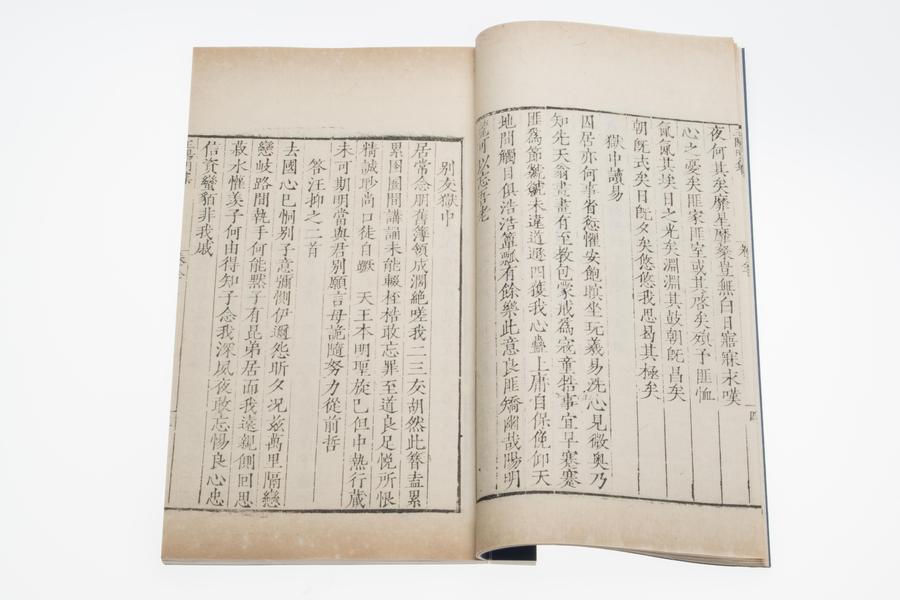 夜何其矣靡星靡粲豈無白日寤寐未嘆
心之憂矣匪家匪室或其啓矣殞予匪恤
氤氤其埃日之光矣淵淵其鼓朝旣昌矣
朝旣式矣日旣夕矣悠悠我思曷其極矣
獄中讀易
囚居亦何事省愆懼安飽瞑坐玩羲易洗心見微奧乃
知先天翁畫畫有至教包蒙戒爲寇童牿事宜早蹇蹇
匪爲節虩虩未違道遯四獲我心蠱上庸自保俛仰天
地間觸目俱浩浩簞瓢有餘樂此意良匪矯幽哉陽明
麓可以忘吾老
別友獄中
居常念朋舊簿領成濶絶嗟我二三友胡然此簪盍累
累囹圄間講誦未能輟桎梏敢忘罪至道良足悅所恨
精誠眇尚口徒自蹶 天王本明聖旋已但中熱行藏
未可期明當與君別願言毋詭隨努力從前哲
答汪抑之二首
去國心已恫別子意彌惻伊邇怨昕夕況茲萬里隔戀
戀岐路間執手何能默子有昆弟居而我遠親側回思
菽水懽羨子何由得知子念我深夙夜敢忘惕良心忠
信資蠻貊非我戚